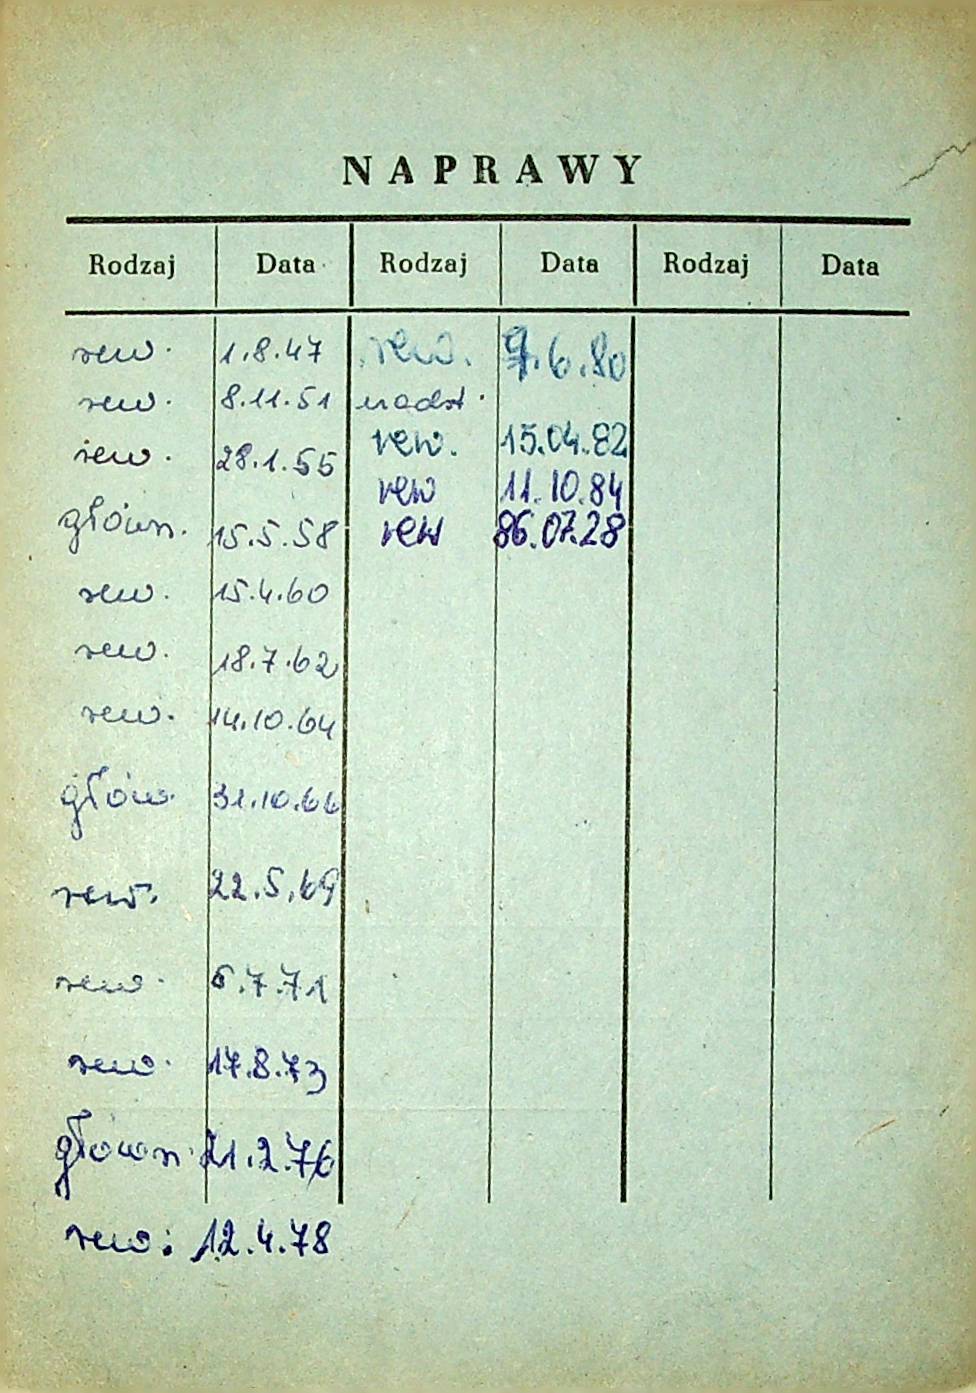 NAPRAWY
Rodzaj Data Rodzaj Data Rodzaj Data
rew. 1.8.47 rew. 9.6.80
rew. 8.11.51 nadst.
rew. 28.1.55 rew. 15.04.82
rew 11.10.84
główn. 15.5.58 rew 86.07.28
rew. 15.4.60
rew. 18.7.62
rew. 14.10.64
głów. 31.10.66
rew. 22.5.69
rew. 6.7.71
rew. 17.8.73
główn. 21.2.76
rew: 12.4.78